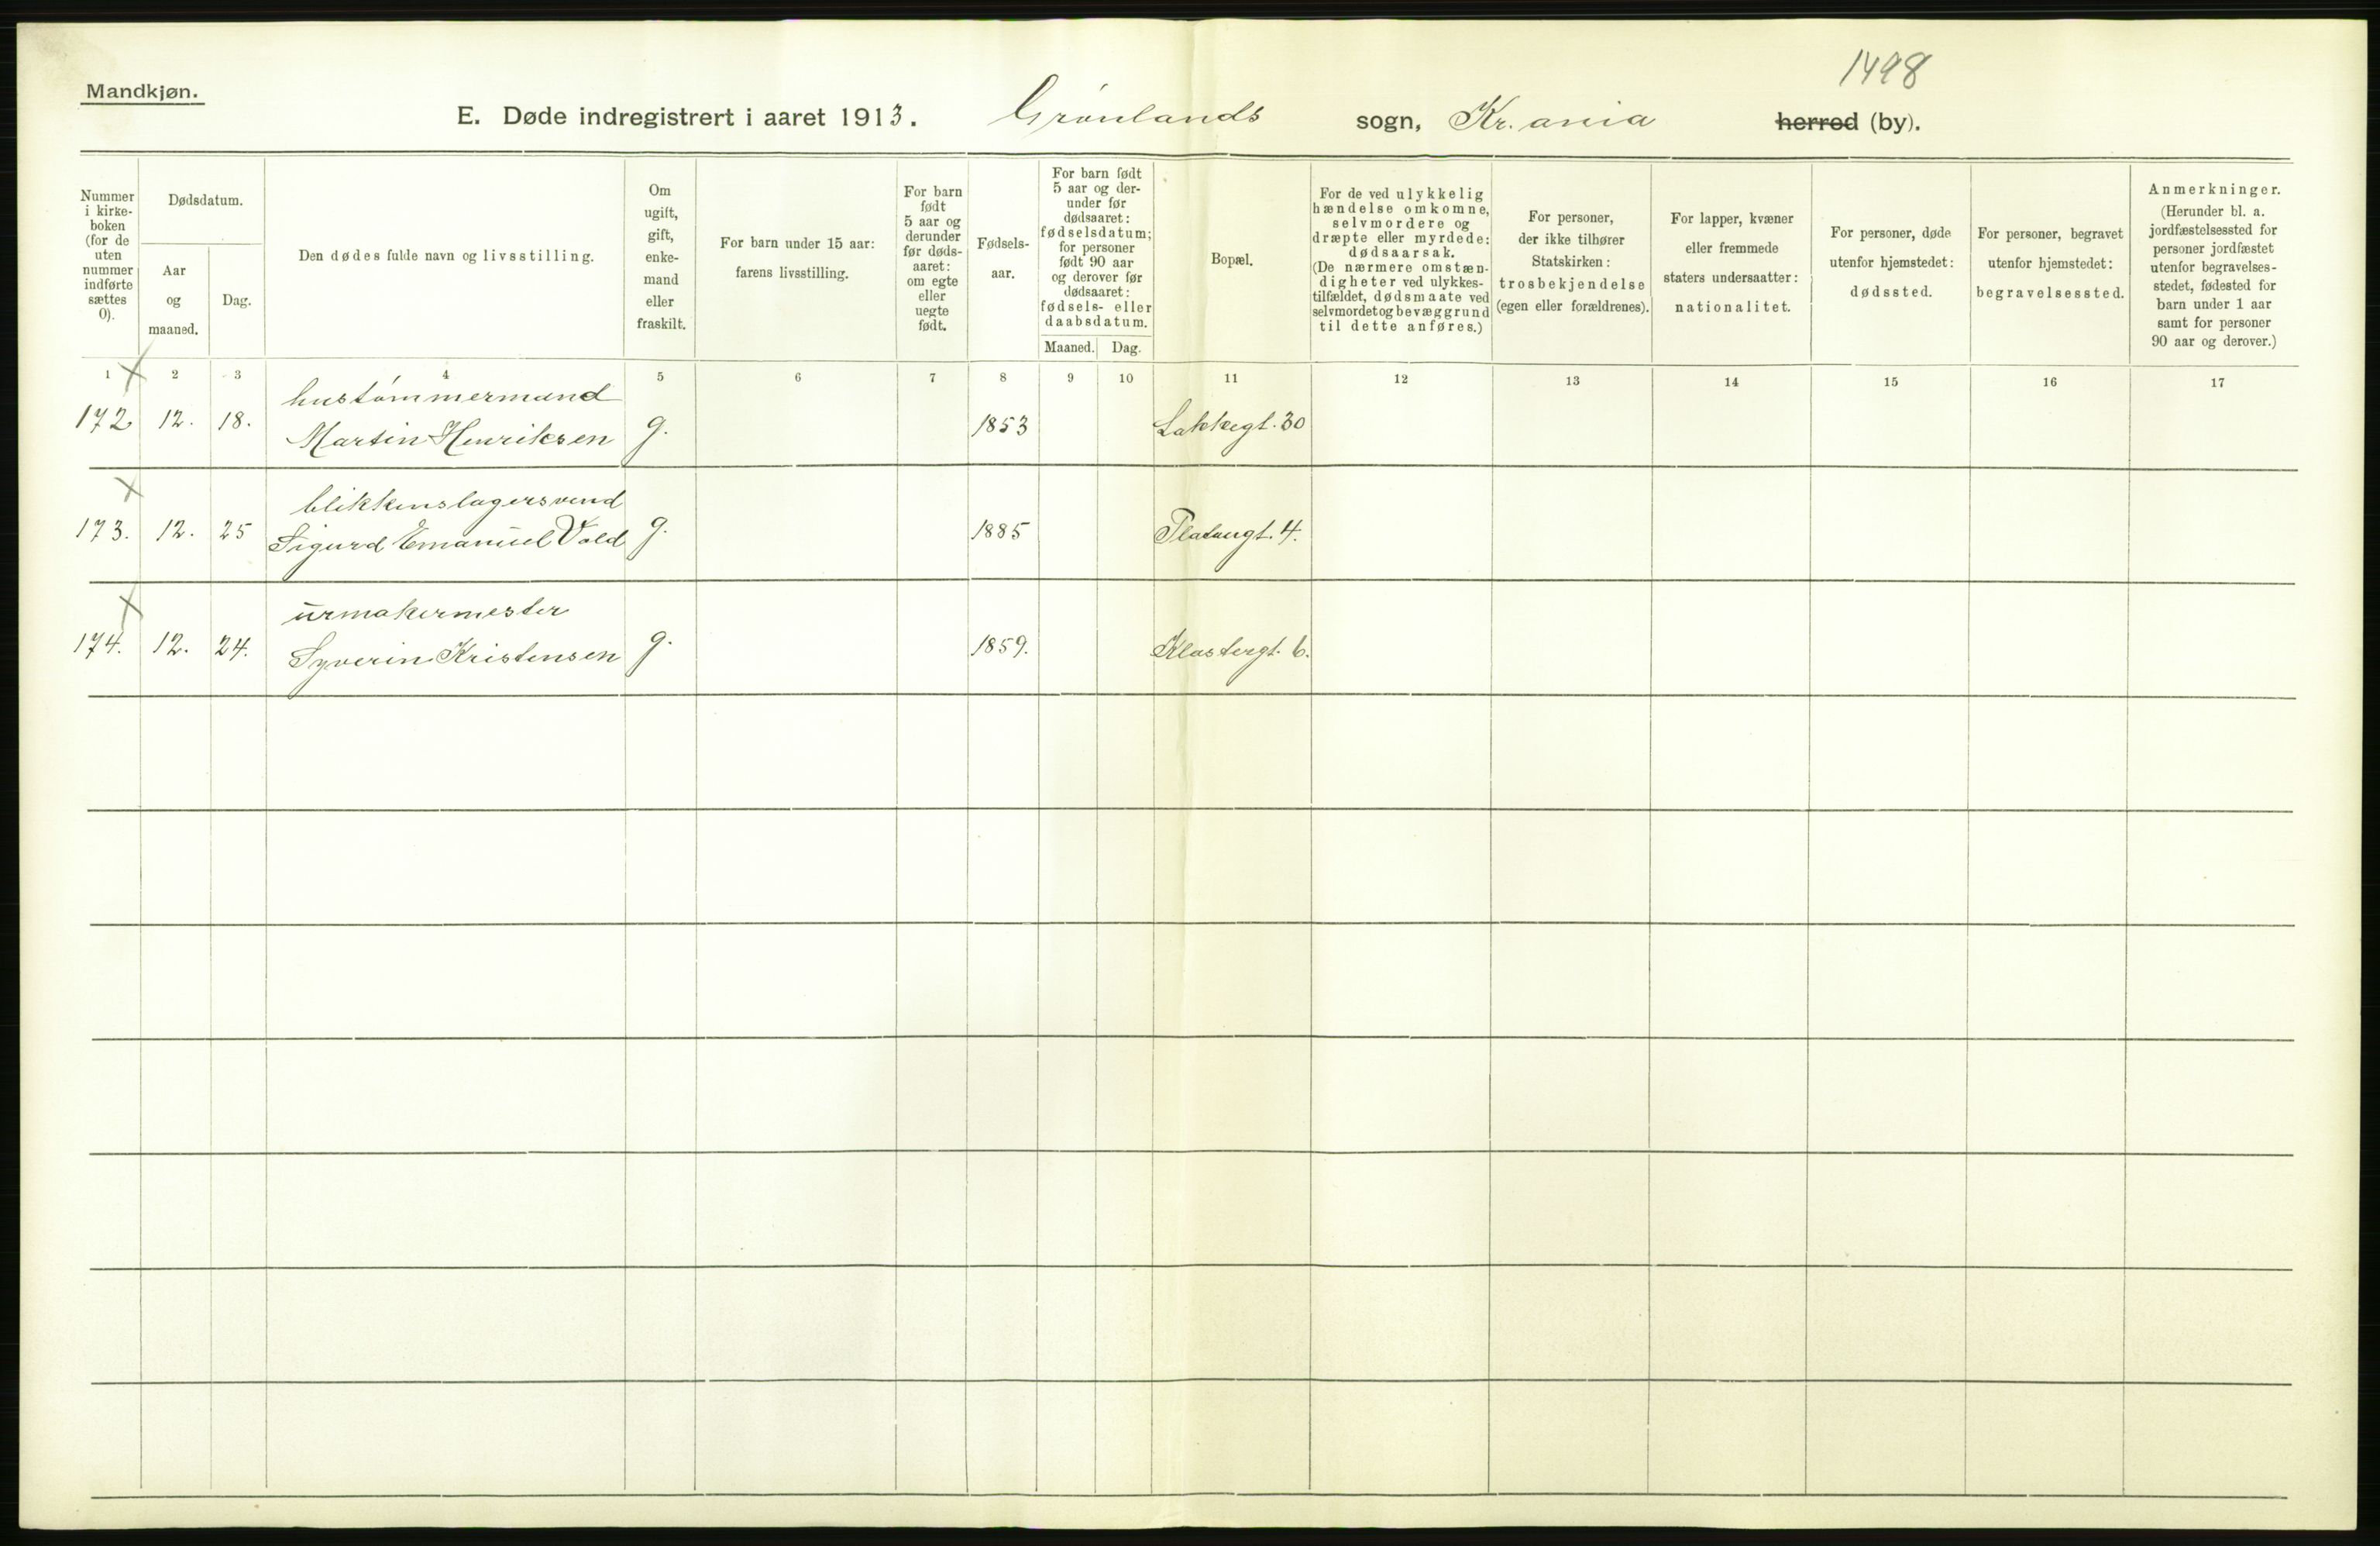 1498
Mandkjøn.
E. Døde indregistrert i aaret 1913. Grønlands sogn, Kr.ania herred (by).
Nummer i kirke-boken (for de uten nummer indførte sættes 0).
Dødsdatum.
Aar og maaned.
Dag.
Den dødes fulde navn og livsstilling.
Om ugift, gift, enke-mand eller fraskilt.
For barn under 15 aar: farens livsstilling.
For barn født 5 aar og derunder før døds-aaret: om egte eller uegte født.
Fødsels-aar.
For barn født 5 aar og der-under før dødsaaret: fødselsdatum; for personer født 90 aar og derover før dødsaaret: fødsels- eller daabsdatum.
Maaned. Dag.
Bopæl.
For de ved ulykkelig hændelse omkomne, selvmordere og dræpte eller myrdede: dødsaarsak. (De nærmere omstæn-digheter ved ulykkes-tilfældet, dødsmaate ved selvmordet og bevæggrund til dette anføres.)
For personer, der ikke tilhører Statskirken: trosbekjendelse (egen eller forældrenes).
For lapper, kvæner eller fremmede staters undersaatter: nationalitet.
For personer, døde utenfor hjemstedet: dødssted.
For personer, begravet utenfor hjemstedet: begravelsessted.
Anmerkninger. (Herunder bl. a. jordfæstelsessted for personer jordfæstet utenfor begravelses-stedet, fødested for barn under 1 aar samt for personer 90 aar og derover.)
1 2 3 4 5 6 7 8 9 10 11 12 13 14 15 16 17
hustømmermand
172 12. 18. Martin Henriksen g. 1853 Lakkegt. 30
blikkenslagersvend
173. 12. 25 Sigurd Emanuel Vold g. 1885 Platougt. 4.
urmakermester
174. 12. 24. Syverin Kristensen g. 1859. Klostergt. 6.